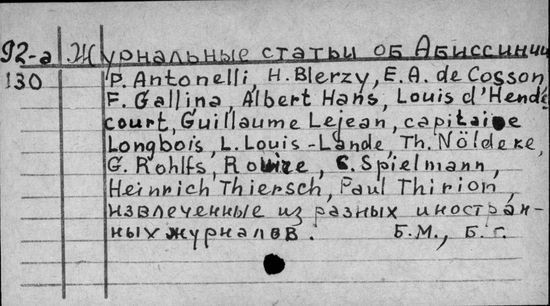 92-а Журнальные статьи об Абиссинии
130 P. Antonelli, H. Blerzy, E. A. de Cosson,
F. Gallina, Albert Hans, Louis d'Hendé-
court, Guillaume Lejean, capitaine
Longbois, L. Louis-Lande, Th. Nöldeke,
G. Rohlfs, Rouire, C. Spielmann,
Heinrich Thiersch, Paul Thirion,
извлеченные из разных иностран-
ных журналов. Б.М., Б.г.